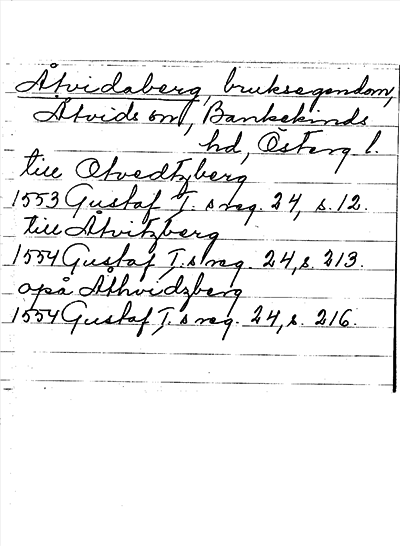 Åtvidaberg, bruksegendom,
Åtvids sn, Bankekinds
hd, Österg. l.
till Otvedtzberg
1553 Gustaf I:s reg. 24, s. 12.
till Åtvitzberg
1554 Gustaf I:s reg. 24, s. 213.
opå Åthvidzberg
1554 Gustaf I:s reg. 24, s. 216.